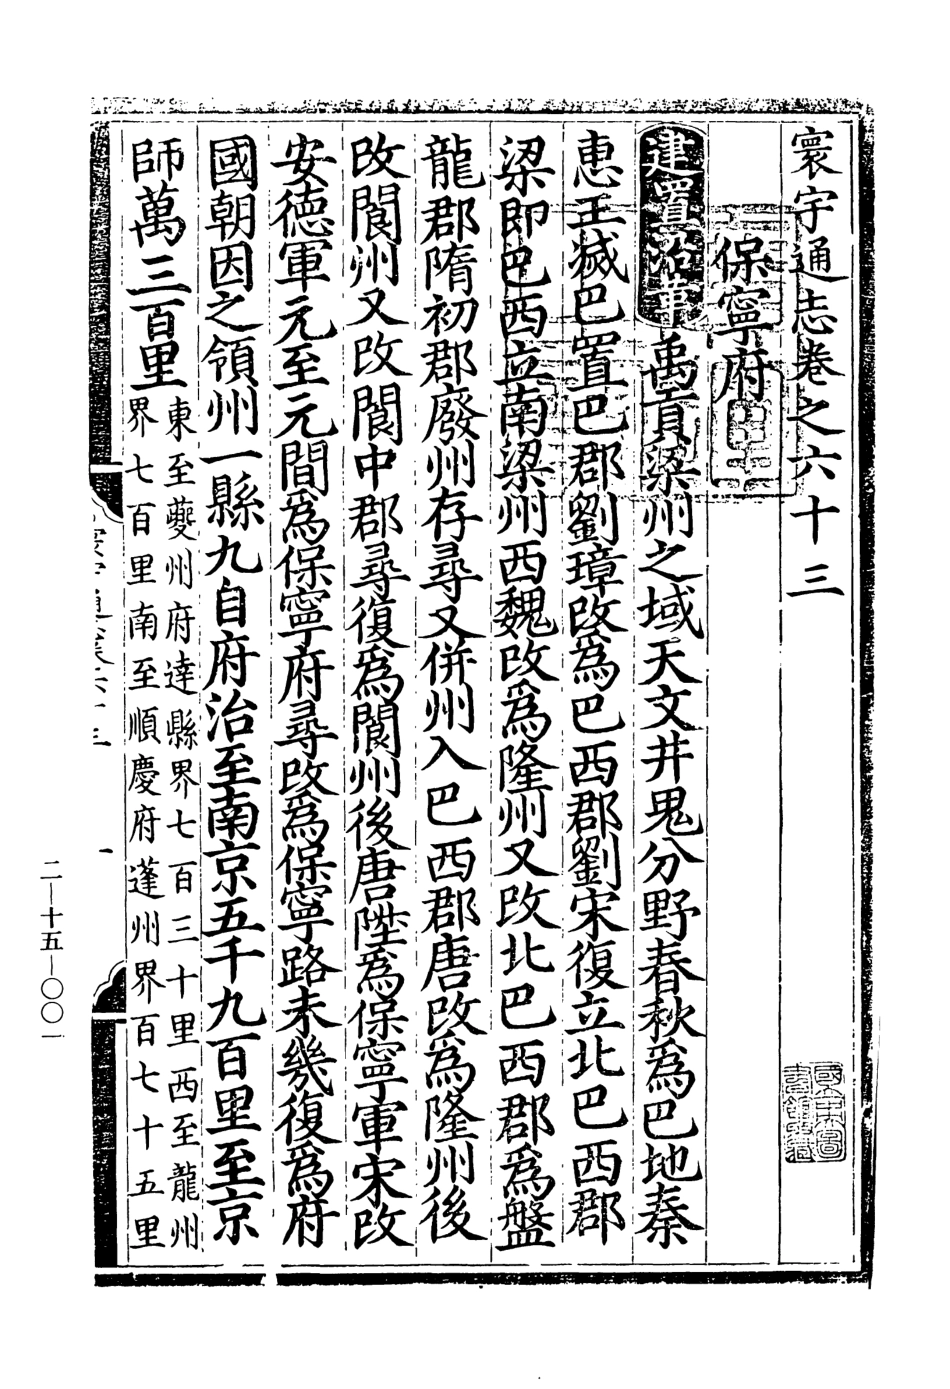 寰宇通志卷之六十三
保寧府
建置沿革禹貢梁州之域天文井鬼分野春秋為巴地秦
惠王滅巴置巴郡劉璋改為巴西郡劉宋復立北巴西郡
梁即巴西立南梁州西魏改為隆州又改北巴西郡為盤
龍郡隋初郡廢州存尋又併州入巴西郡唐改為隆州後
改閬州又改閬中郡尋復為閬州後唐陞為保寧軍宋改
安德軍元至元間為保寧府尋改為保寧路未幾復為府
國朝因之領州一縣九自府治至南京五千九百里至京
師萬三百里東至夔州府達縣界七百三十里西至龍州
界七百里南至順慶府蓬州界百七十五里
寰宇通志卷六十三
一
二—十五—〇〇一